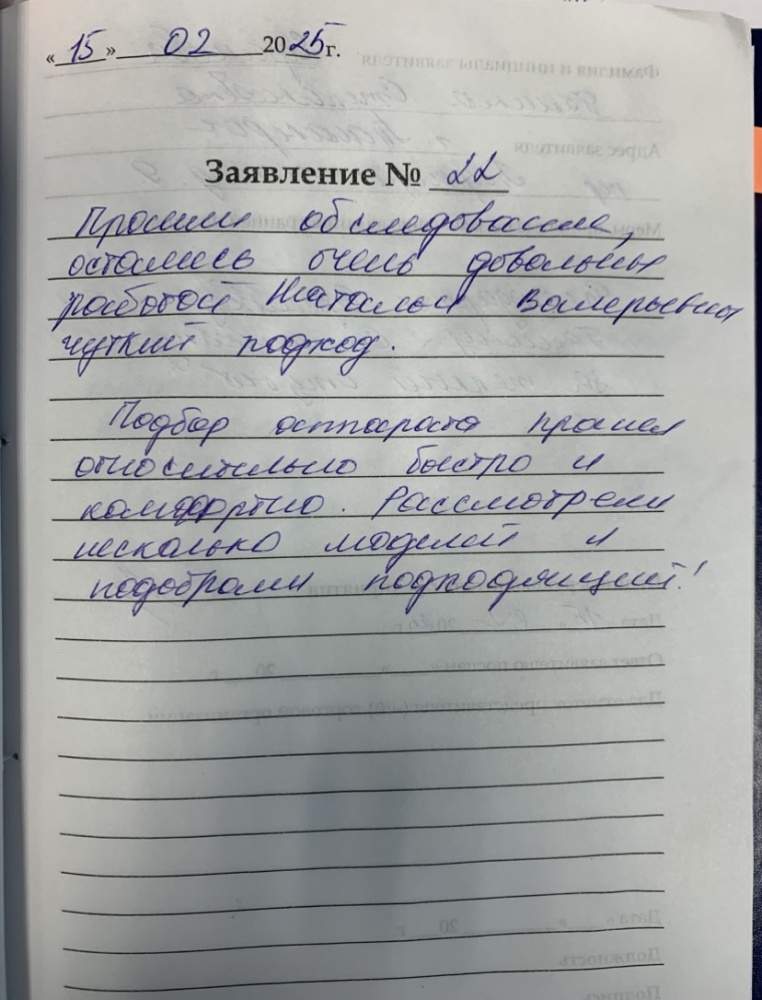 «15» 02 2025 г.
Заявление № 22
Прошли обследование,
остались очень довольны
работой Натальи Валерьевны
чуткий подход.
Подбор аппарата прошел
относительно быстро и
комфортно. Рассмотрели
несколько моделей и
подобрали подходящий!